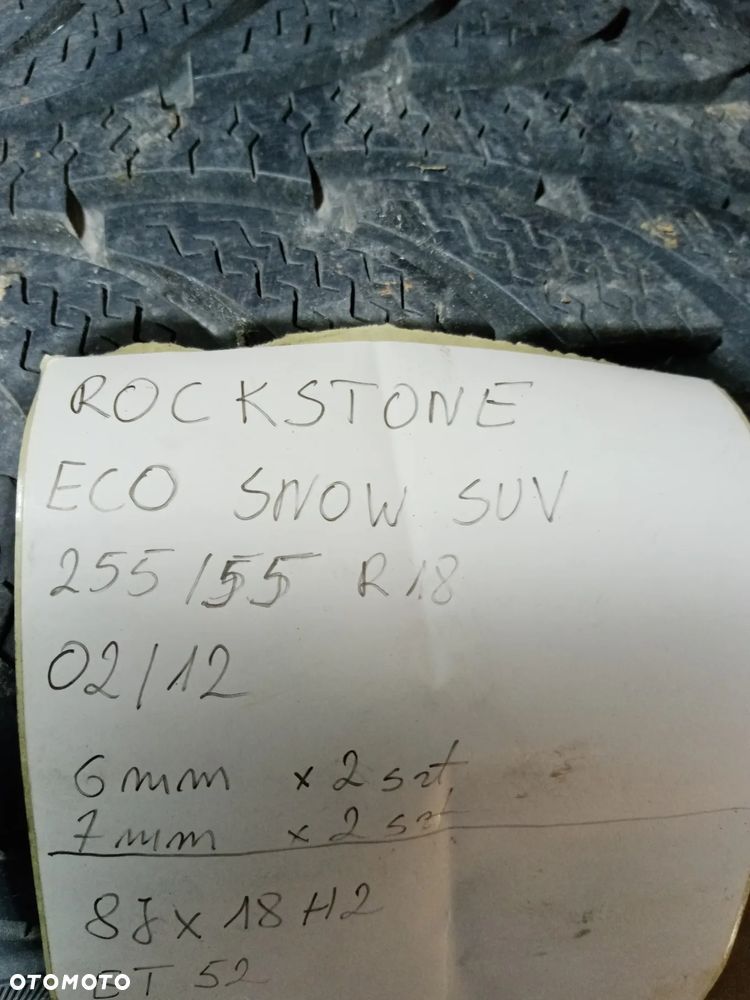 ROCKSTONE
ECO SNOW SUV
255/55 R18
02/12
6mm x 2 szt.
7mm x 2 szt
8J x 18 H2
ET 52
OTOMOTO